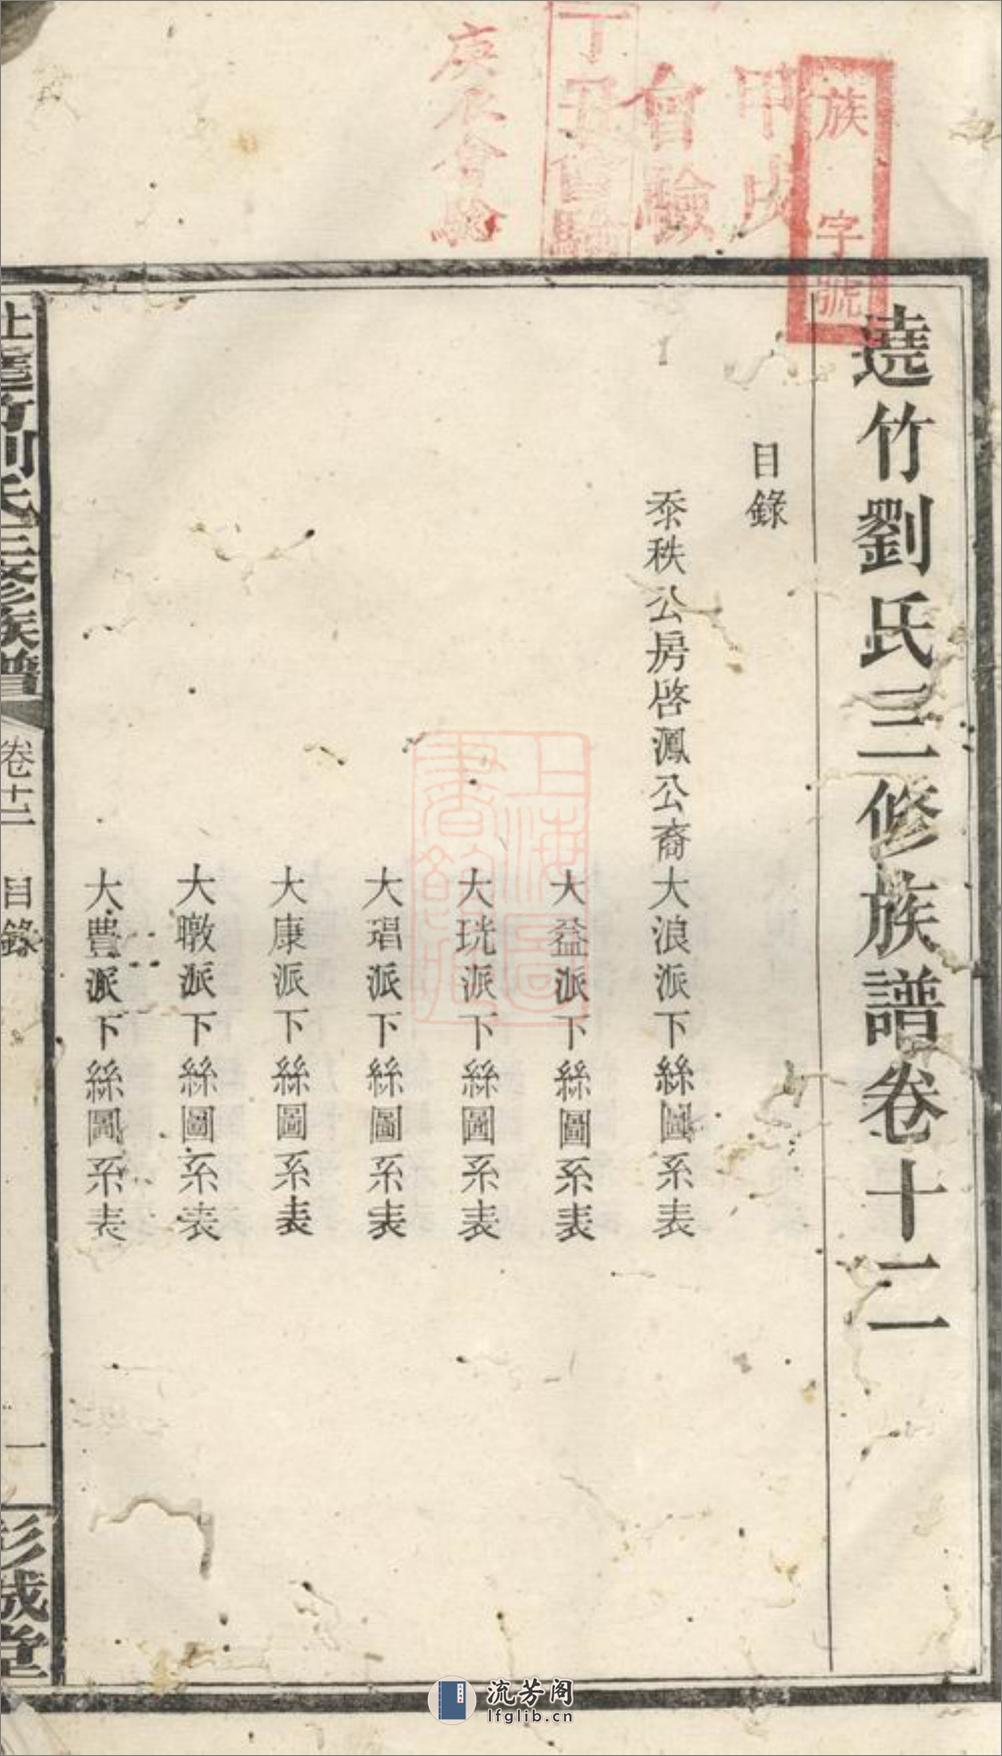 族字號
甲戌
會驗
丁丑會驗
庚辰會驗
遶竹劉氏三修族譜卷十二
目錄
泰秩公房啓鳳公裔大浪派下絲圖系表
大益派下絲圖系表
大珖派下絲圖系表
大琩派下絲圖系表
大康派下絲圖系表
大暾派下絲圖系表
大豊派下絲圖系表
遶竹劉氏三修族譜
卷十二
目錄
一
彭城堂
上海圖書館藏
流芳阁
lfglib.cn